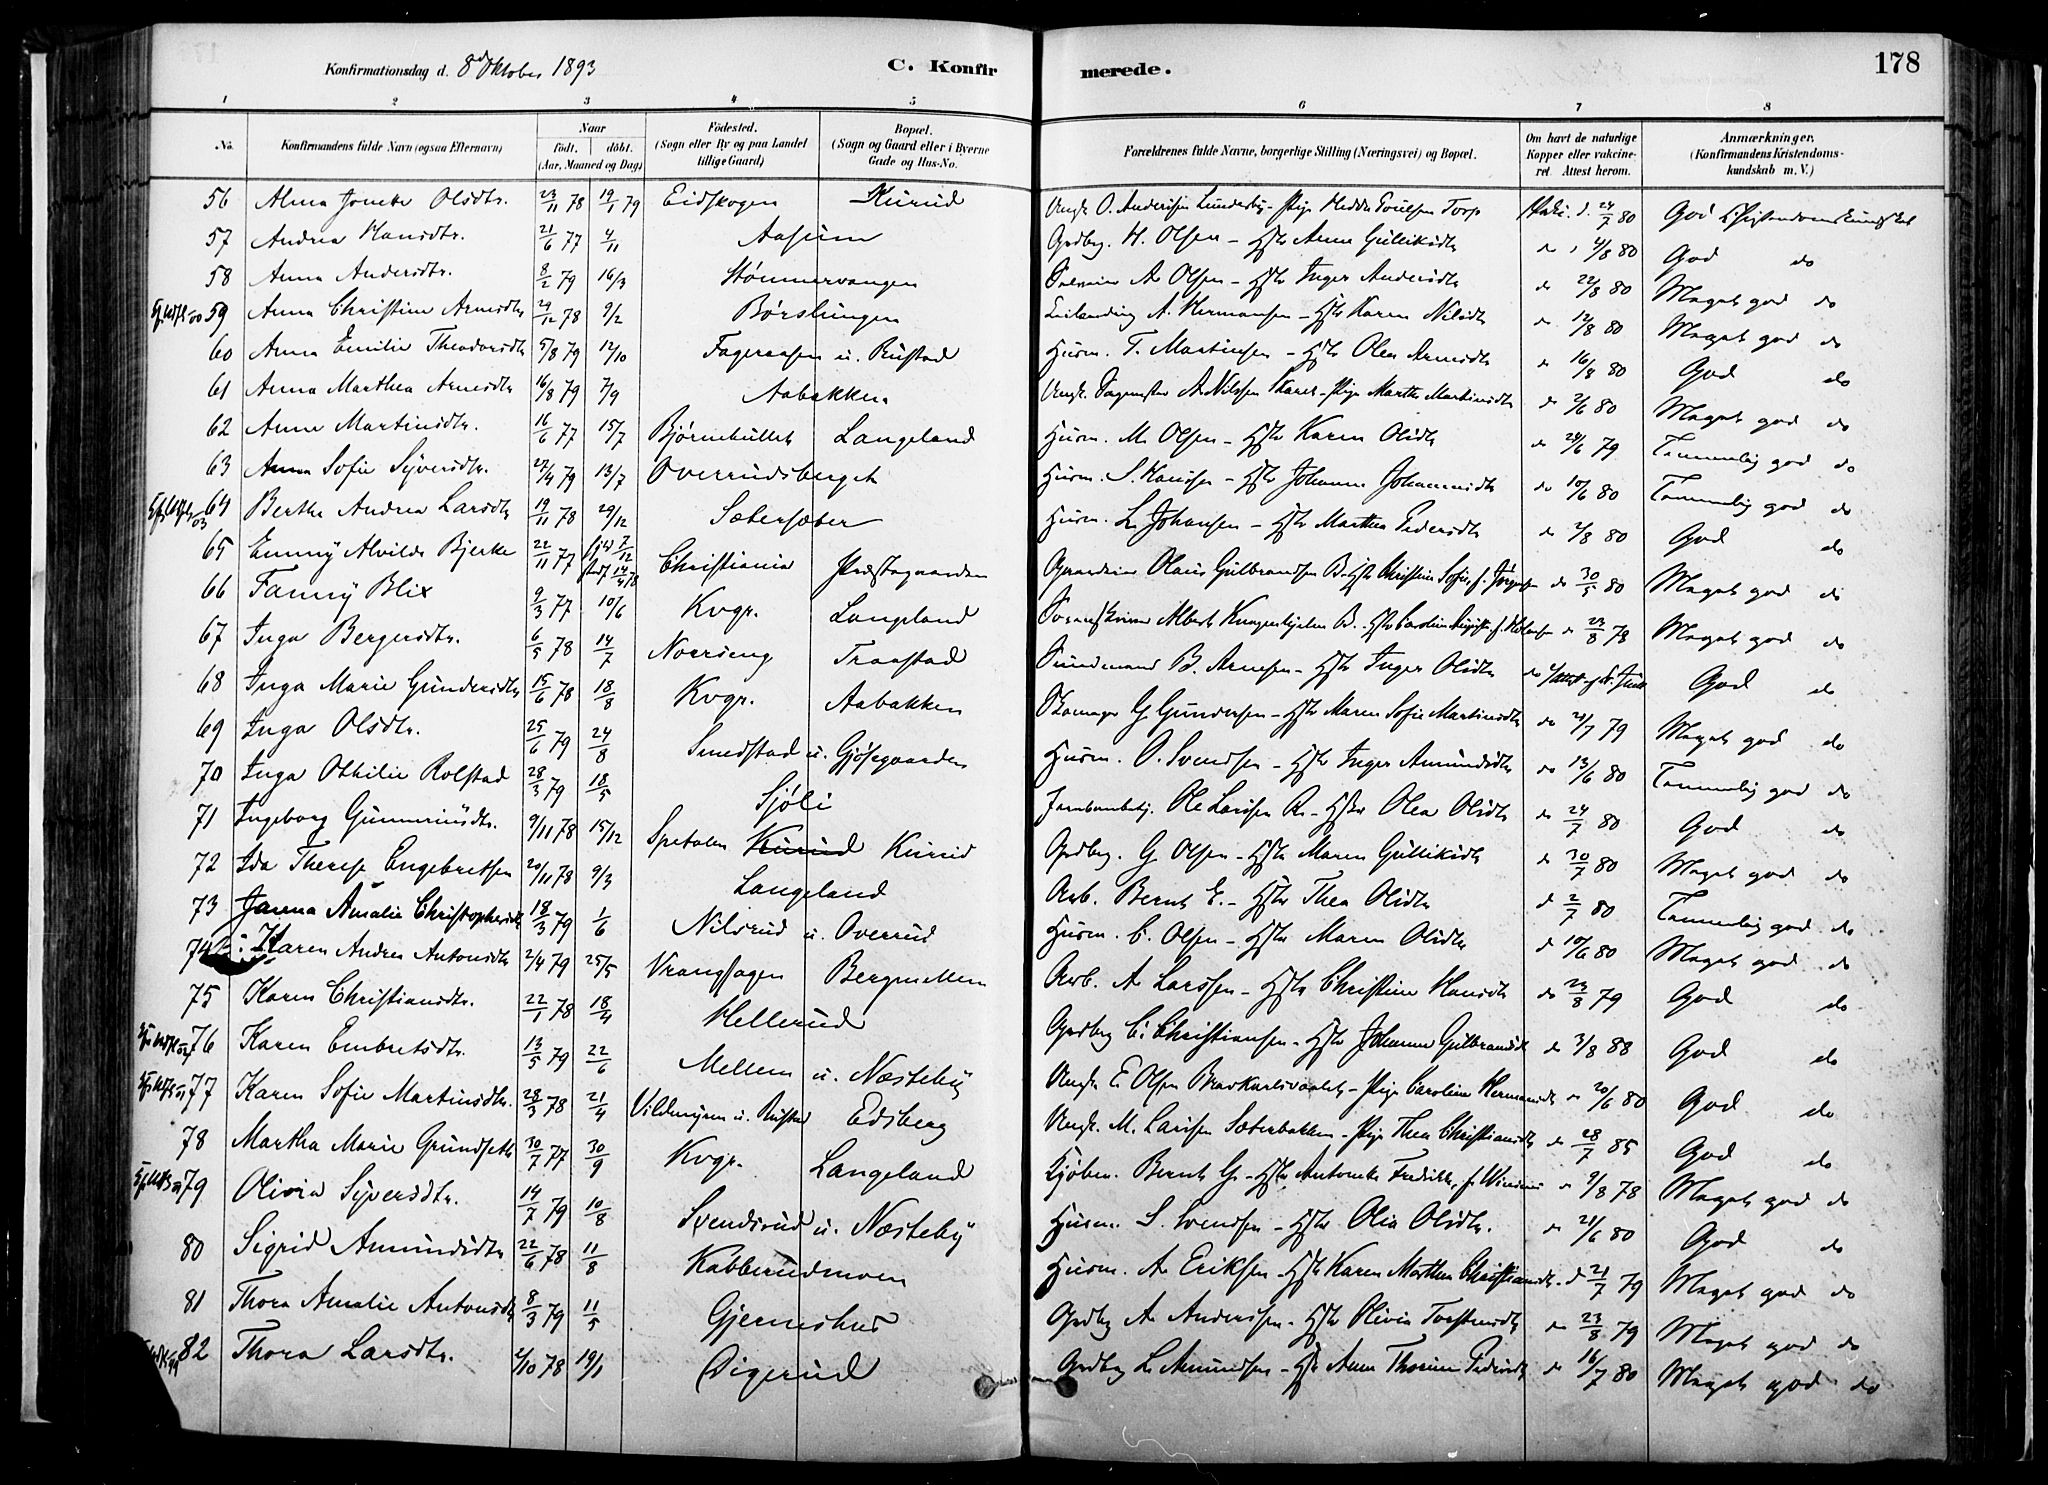 178
Konfirmationsdag d. 8d Oktober 1893 C. Konfirmerede.
1 2 3 4 5 6 7 8
No. Konfirmandens fulde Navn (ogsaa Efternavn) Naar födt. döbt. (Aar, Maaned og Dag) Födested. (Sogn eller By og paa Landet tillige Gaard) Bopæl. (Sogn og Gaard eller i Byerne Gade og Hus-No. Forældrenes fulde Navne, borgerlige Stilling (Næringsvei) og Bopæl. Om havt de naturlige Kopper eller vakcineret. Attest herom. Anmærkninger, (Konfirmandens Kristendomskundskab m. V.)
56 Alma Olsdtr. 23/11 78 19/1 79 Eidskogen Kurud Ungk. O. Andersen Lunderby - Pige Hedda Poulsen Torp Vakc. d. 24/7 80 God Christendomskundskab
57 Andrea Hansdtr. 21/6 77 4/11 Aasum Grdbrg. H. Olsen - Hstr Anne Gulliksdtr do 4/8 80 God do
58 Anna Andersdtr. 8/2 79 16/3 Stömmervangen A. Olsen - Hstr Inger Andersdtr do 22/8 80 Meget god do
59 Anna Christine Arnesdtr 29/12 78 9/2 Börslungen Leilending A. Hermansen - Hstr Karen Nilsdtr do 12/8 80 Meget god do
60 Anna Emilie Theodorsdtr 5/8 79 12/10 Fageraasen u. Rustad Husm. T. Martinsen - Hstr Olea Arnesdtr do 16/8 80 God do
61 Anna Marthea Arnesdtr 16/8 79 7/9 Aabakken Ungk. Sagmester A. Nilssen Skaret - Pige Marthe Martinsdtr do 2/6 80 Meget god do
62 Anne Martinsdtr. 16/6 77 15/7 Björnehullet Langeland Husm. M. Olsen - Hstr Karen Olsdtr do 24/6 79 Temmelig god do
63 Anna Sofie Syversdtr. 27/4 79 13/7 Overrudsberget Husm. S. Hanssen - Hstr Johanne Johannesdtr do 10/6 80 Temmelig god do
64 Berthe Andrea Larsdtr 19/11 78 29/12 Sætersæter Husm. L. Johansen - Hstr Marthea Pedersdtr do 2/8 80 God do
65 Emmy Alvilde Bjerke 22/11 77 7/12 14/4 78 Christiania Præstegaarden Gaardeier Olaus Gulbrandsen B. - Hstr Christine Sofie, f. Jörgensen do 30/5 80 Meget god do
66 Fanny Blix 9/3 77 10/6 Kvgr. Langeland Sorenskriver Albert B. - Hstr Caroline Augusta f. do 23/8 78 Meget god do
67 Inga Bergersdtr. 6/5 78 14/7 Norrseng Traastad Sundmand B. Arnesen - Hstr Inger Olsdtr do God do
68 Inga Marie Gundersdtr 15/6 78 18/8 Kvgr. Aabakken Skomager G. Gundersen - Hstr Maren Sofie Martinsdtr do 21/7 79 Meget god do
69 Inga Olsdtr. 25/6 79 24/8 Smedstad u. Gjösegaarden Husm. O. Svendsen - Hstr Inger Amundsdtr do 13/6 80 Temmelig god do
70 Inga Othilie Rolstad 28/3 79 18/5 Sjöli Jernbanebetj. Ole Larsen R. - Hstr Olea Olsdtr do 24/7 80 God do
71 Ingeborg Gunneriusdtr. 9/11 78 15/12 Spetalen Kurud Kurud Grdbrg. G. Olsen - Hstr Maren Gulliksdtr d 30/7 80 Meget god do
72 Ida Therese Engebretsen 20/11 78 9/3 Langeland Arb. Bernt E. - Hstr Thea Olsdtr d 2/7 80 Temmelig god do
73 Janna Amalie Christophersdtr 18/3 79 1/6 Nilsrud u. Overrud Husm. C. Olsen - Hstr Maren Olsdtr d 10/6 80 Meget god do
74 Karen Andrea Antonsdtr 2/4 79 25/5 Vrangsagen Bergmellem Arb. A. Larssen - Hstr Christine Hansdtr do 23/8 79 God do
75 Karen Christiansdtr. 22/1 78 18/4 Hellerud Grdbrg C. Christiansen - Hstr Johanne Gulbrandsdtr do 3/8 88 God do
76 Karen Embretsdtr. 13/5 79 22/6 Mellem u. Næsteby Ungk. E. Olsen - Pige Caroline Hermansdtr do 20/6 80 God do
77 Karen Sofie Martinsdtr. 28/3 78 21/4 Vildmyren u. Rustad Edsberg Ungk. M. Larsen Sæterbakken - Pige Thea Christiansdtr do 28/7 85 God do
78 Martha Marie Grundseth 30/7 77 30/9 Kvgr. Langeland Kjöbm. Bernt G. - Hstr Antonette Fredrikke, f. do 9/8 78 Meget god do
79 Olivia Syversdtr. 14/7 79 10/8 Svendsrud u. Næsteby Husm. S. Svendsen - Hstr Olia Olsdtr. do 21/6 80 God do
80 Sigrid Amundsdtr 22/6 78 11/8 Kabberudmoen Husm. A. Eriksen - Hstr Karen Marthea Christiansdtr. d 21/7 79 Meget god do
81 Thora Amalie Antonsdtr 8/3 79 11/5 Gjerneshus Grdbrg A. Andersen - Hstr Olivia Torstensdtr do 23/8 79 Meget god do
82 Thora Larsdtr. 2/10 78 19/1 Digerud Grdbrg L. Amundsen - Hstr Anne Thorine Pedersdtr do 16/7 80 Meget god do